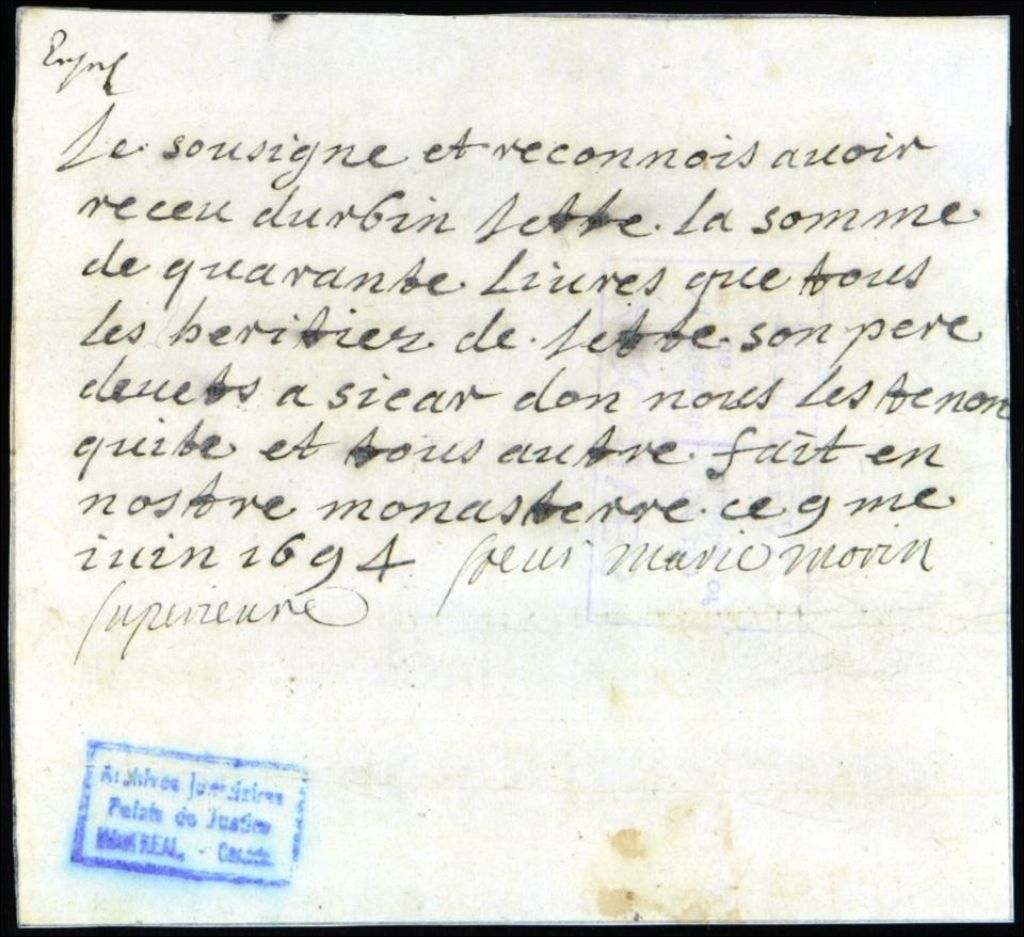 Je sousigne et reconnois auoir
receu durbin Jette la somme
de quarante Liures que tous
les heritiez de Jette son pere
deuets a sicar don nous les tenon
quite et tous autre fait en
nostre monasterre ce 9 me
iuin 1694 Soeur marie morin
superieure
Archives judiciaires
Palais de Justice
MONTREAL, - Canada